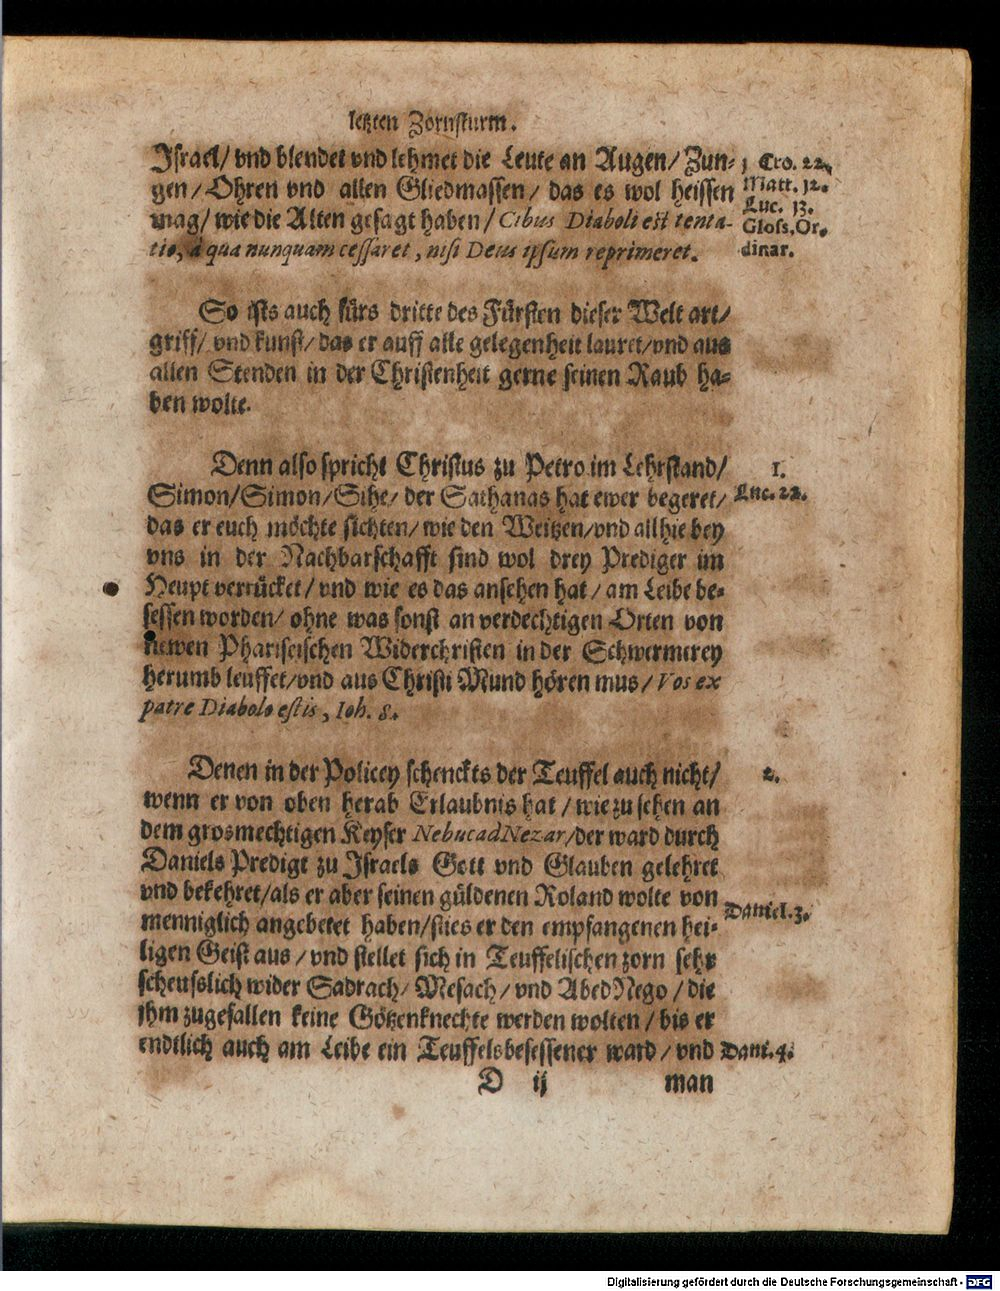 letzten Zornsturm.
Israel/ vnd blendet vnd lehmet die Leute an Augen/ Zun-
gen/ Ohren vnd allen Gliedmassen/ das es wol heissen
mag/ wie die Alten gesagt haben/ Cibus Diaboli est tenta-
tio, à qua nunquam cessaret, nisi Deus ipsum reprimeret.
1 Cro. 22.
Matt. 12.
Luc. 13.
Gloss. Or.
dinar.
So ists auch fürs dritte des Fürsten dieser Welt art/
griff/ vnd kunst/ das er auff alle gelegenheit lauret/ vnd aus
allen Stenden in der Christenheit gerne seinen Raub ha-
ben wolte.
Denn also spricht Christus zu Petro im Lehrstand/
Simon/ Simon/ Sihe/ der Sathanas hat ewer begeret/
das er euch möchte sichten/ wie den Weitzen/ vnd allhie bey
vns in der Nachbarschafft sind wol drey Prediger im
Heupt verrücket/ vnd wie es das ansehen hat/ am Leibe be-
sessen worden/ ohne was sonst an verdechtigen Orten von
newen Phariseischen Widerchristen in der Schwermerey
herumb leuffet/ vnd aus Christi Mund hören mus/ Vos ex
patre Diabolo estis, Ioh. 8.
1.
Luc. 22.
Denen in der Policey schenckts der Teuffel auch nicht/
wenn er von oben herab Erlaubnis hat/ wie zu sehen an
dem grosmechtigen Keyser NebucadNezar/ der ward durch
Daniels Predigt zu Israels Gott vnd Glauben gelehret
vnd bekehret/ als er aber seinen güldenen Roland wolte von
menniglich angebetet haben/ sties er den empfangenen hei-
ligen Geist aus/ vnd stellet sich in Teuffelischen zorn sehr
scheuslich wider Sadrach/ Mesach/ vnd AbedNego/ die
ihm zugefallen keine Götzenknechte werden wolten/ bis er
endtlich auch am Leibe ein Teuffelsbesessener ward/ vnd
2.
Daniel. 3.
Dani. 4.
D ij
man
Digitalisierung gefördert durch die Deutsche Forschungsgemeinschaft - DFG